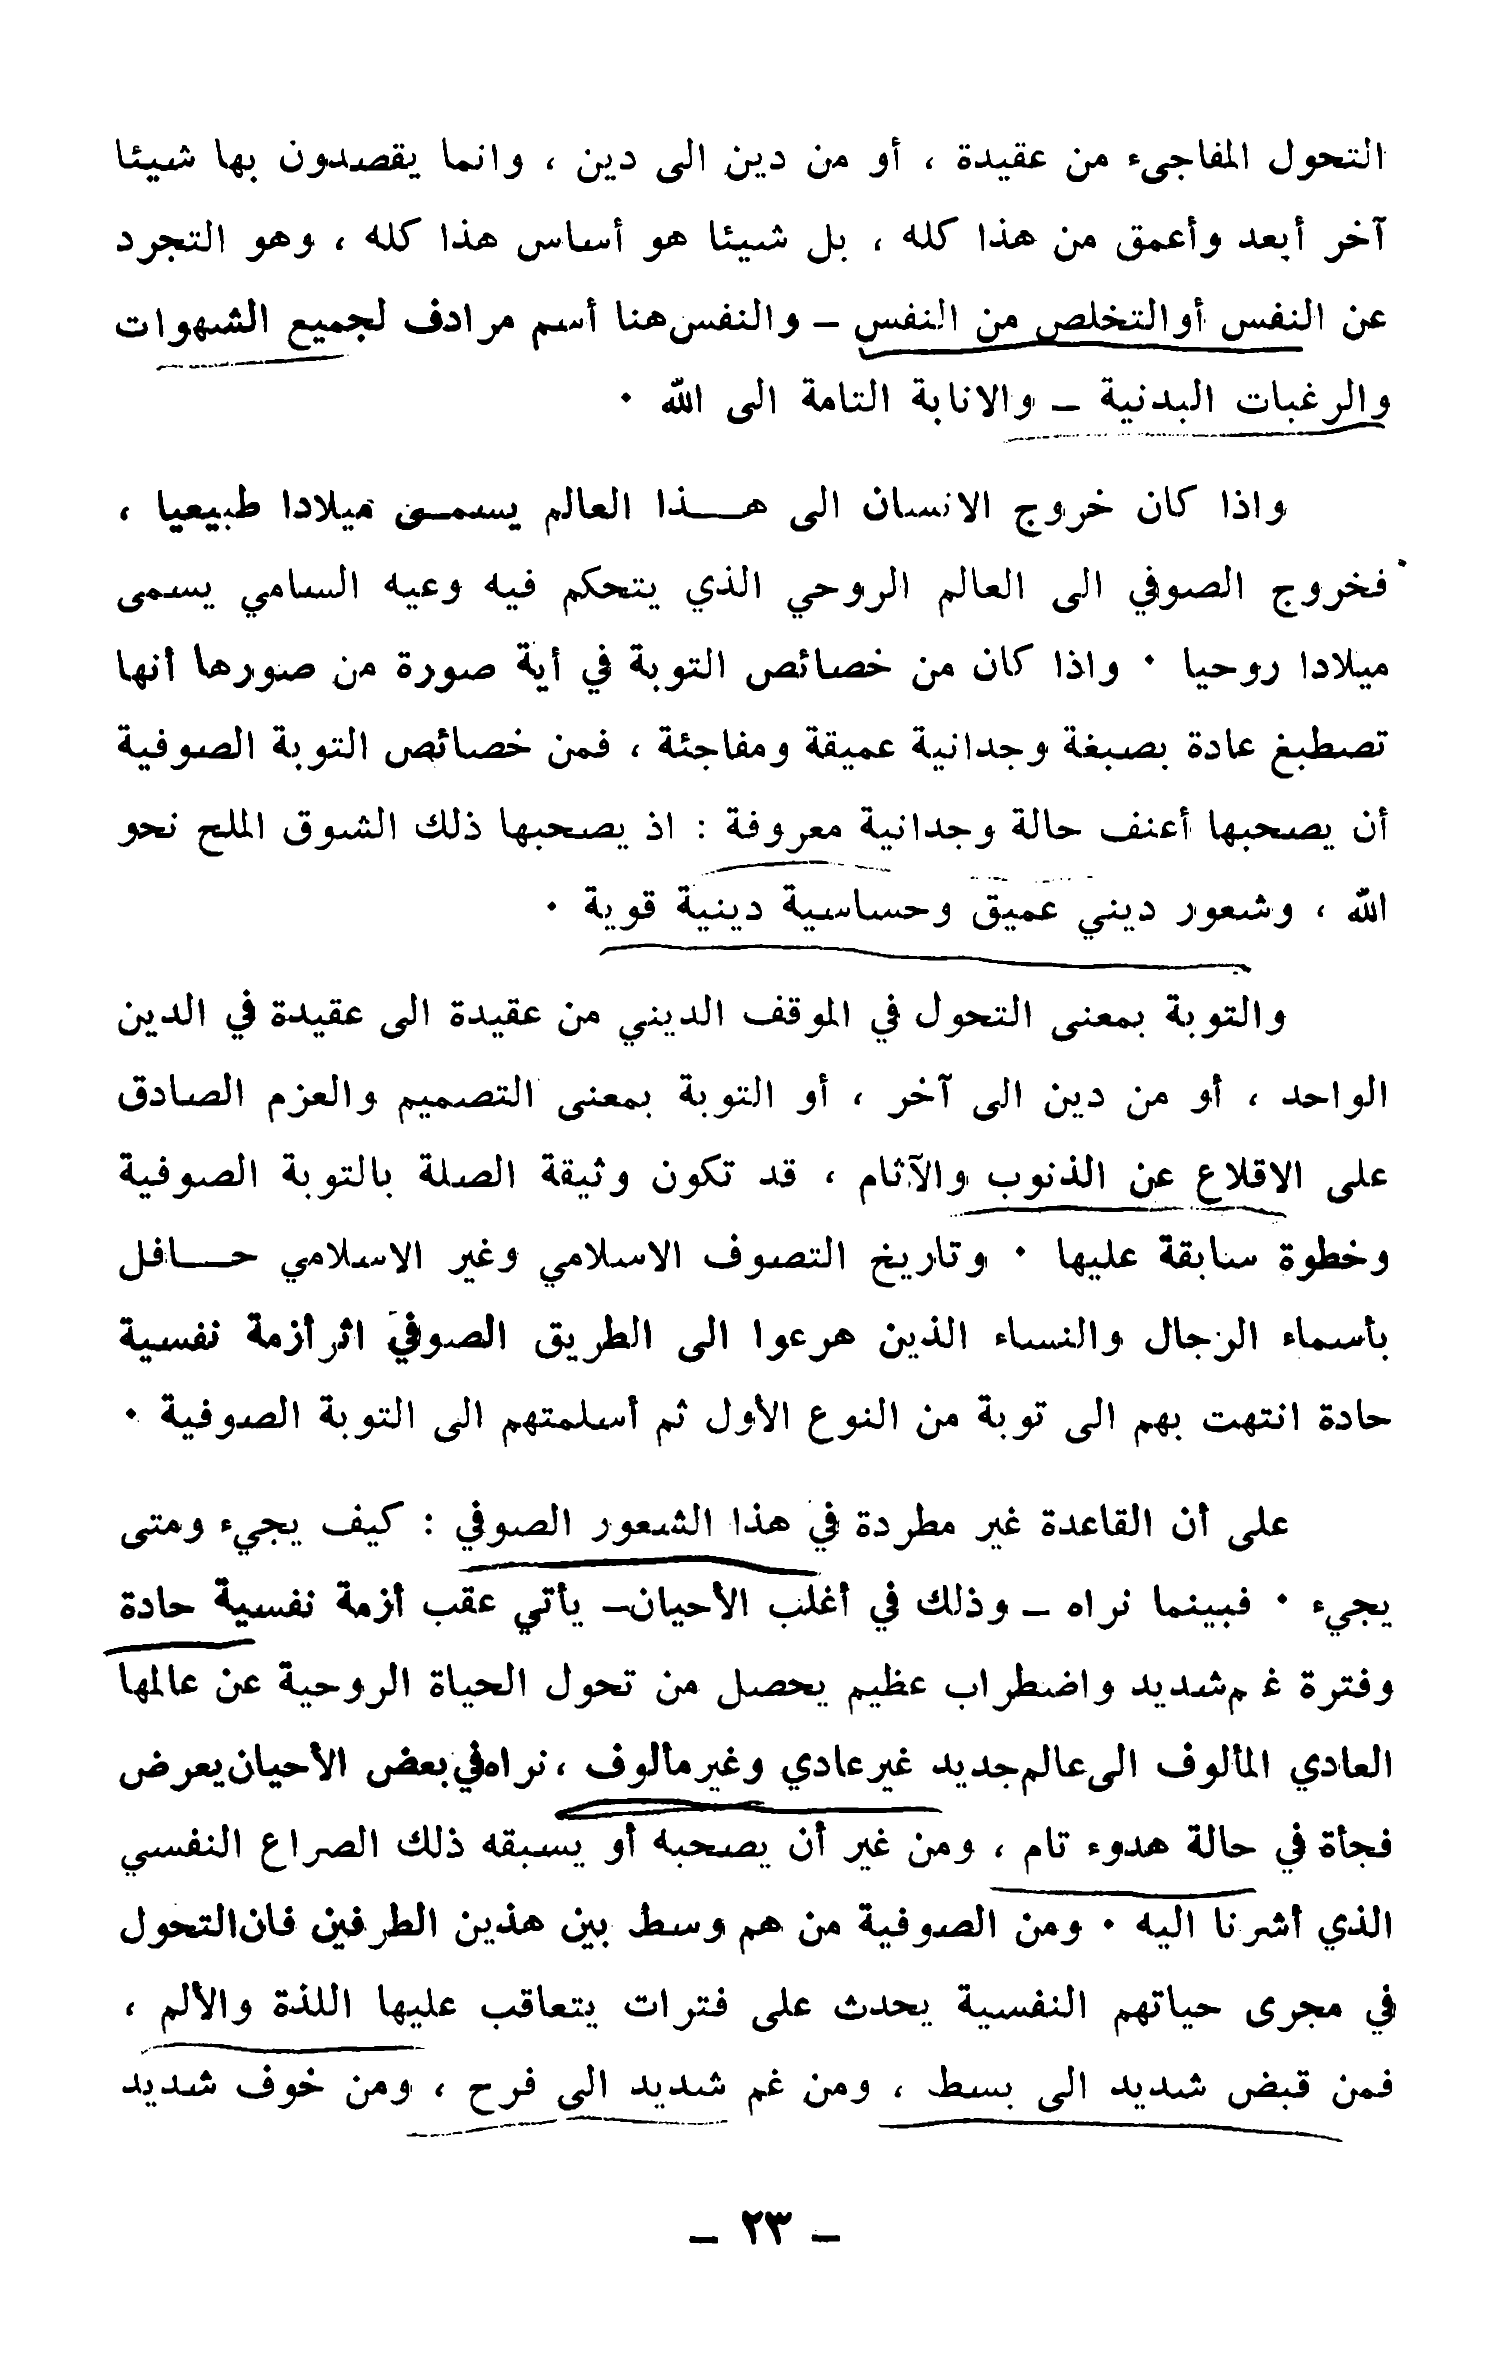 التحول المفاجىء من عقيدة ، أو من دين الى دين ، وانما يقصدون بها شيئا
آخر أبعد وأعمق من هذا كله ، بل شيئا هو أساس هذا كله ، وهو التجرد
عن النفس أو التخلص من النفس – والنفس هنا أسم مرادف لجميع الشهوات
والرغبات البدنية – والانابة التامة الى الله ٠
واذا كان خروج الانسان الى هـــذا العالم يسمــى ميلادا طبيعيا ،
فخروج الصوفي الى العالم الروحي الذي يتحكم فيه وعيه السامي يسمى
ميلادا روحيا ٠ واذا كان من خصائص التوبة في أية صورة من صورها أنها
تصطبغ عادة بصبغة وجدانية عميقة ومفاجئة ، فمن خصائص التوبة الصوفية
أن يصحبها أعنف حالة وجدانية معروفة : اذ يصحبها ذلك الشوق الملح نحو
الله ، وشعور ديني عميق وحساسية دينية قوية ٠
والتوبة بمعنى التحول في الموقف الديني من عقيدة الى عقيدة في الدين
الواحد ، أو من دين الى آخر ، أو التوبة بمعنى التصميم والعزم الصادق
على الاقلاع عن الذنوب والآثام ، قد تكون وثيقة الصلة بالتوبة الصوفية
وخطوة سابقة عليها ٠ وتاريخ التصوف الاسلامي وغير الاسلامي حـــافل
بأسماء الرجال والنساء الذين هرعوا الى الطريق الصوفي اثر أزمة نفسية
حادة انتهت بهم الى توبة من النوع الأول ثم أسلمتهم الى التوبة الصوفية ٠
على أن القاعدة غير مطردة في هذا الشعور الصوفي : كيف يجيء ومتى
يجيء ٠ فبينما نراه – وذلك في أغلب الأحيان – يأتي عقب أزمة نفسية حادة
وفترة غ م شديد واضطراب عظيم يحصل من تحول الحياة الروحية عن عالمها
العادي المألوف الى عالم جديد غير عادي وغير مألوف ، نراه في بعض الأحيان يعرض
فجأة في حالة هدوء تام ، ومن غير أن يصحبه أو يسبقه ذلك الصراع النفسي
الذي أشرنا اليه ٠ ومن الصوفية من هم وسط بين هذين الطرفين فان التحول
في مجرى حياتهم النفسية يحدث على فترات يتعاقب عليها اللذة والألم ،
فمن قبض شديد الى بسط ، ومن غم شديد الى فرح ، ومن خوف شديد
– ٢٣ –